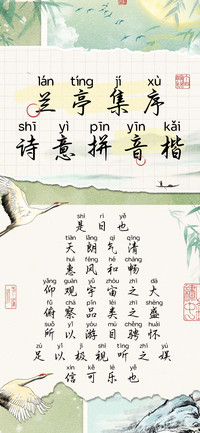 lán tíng jí xù
兰亭集序
shī yì pīn yīn kǎi
诗意拼音楷
shì rì yě
是日也
tiān lǎng qì qīng
天朗气清
huì fēng hé chàng
惠风和畅
yǎng guān yǔ zhòu zhī dà
仰观宇宙之大
fǔ chá pǐn lèi zhī shèng
俯察品类之盛
suǒ yǐ yóu mù chěng huái
所以游目骋怀
zú yǐ jí shì tīng zhī yú
足以极视听之娱
xìn kě lè yě
信可乐也